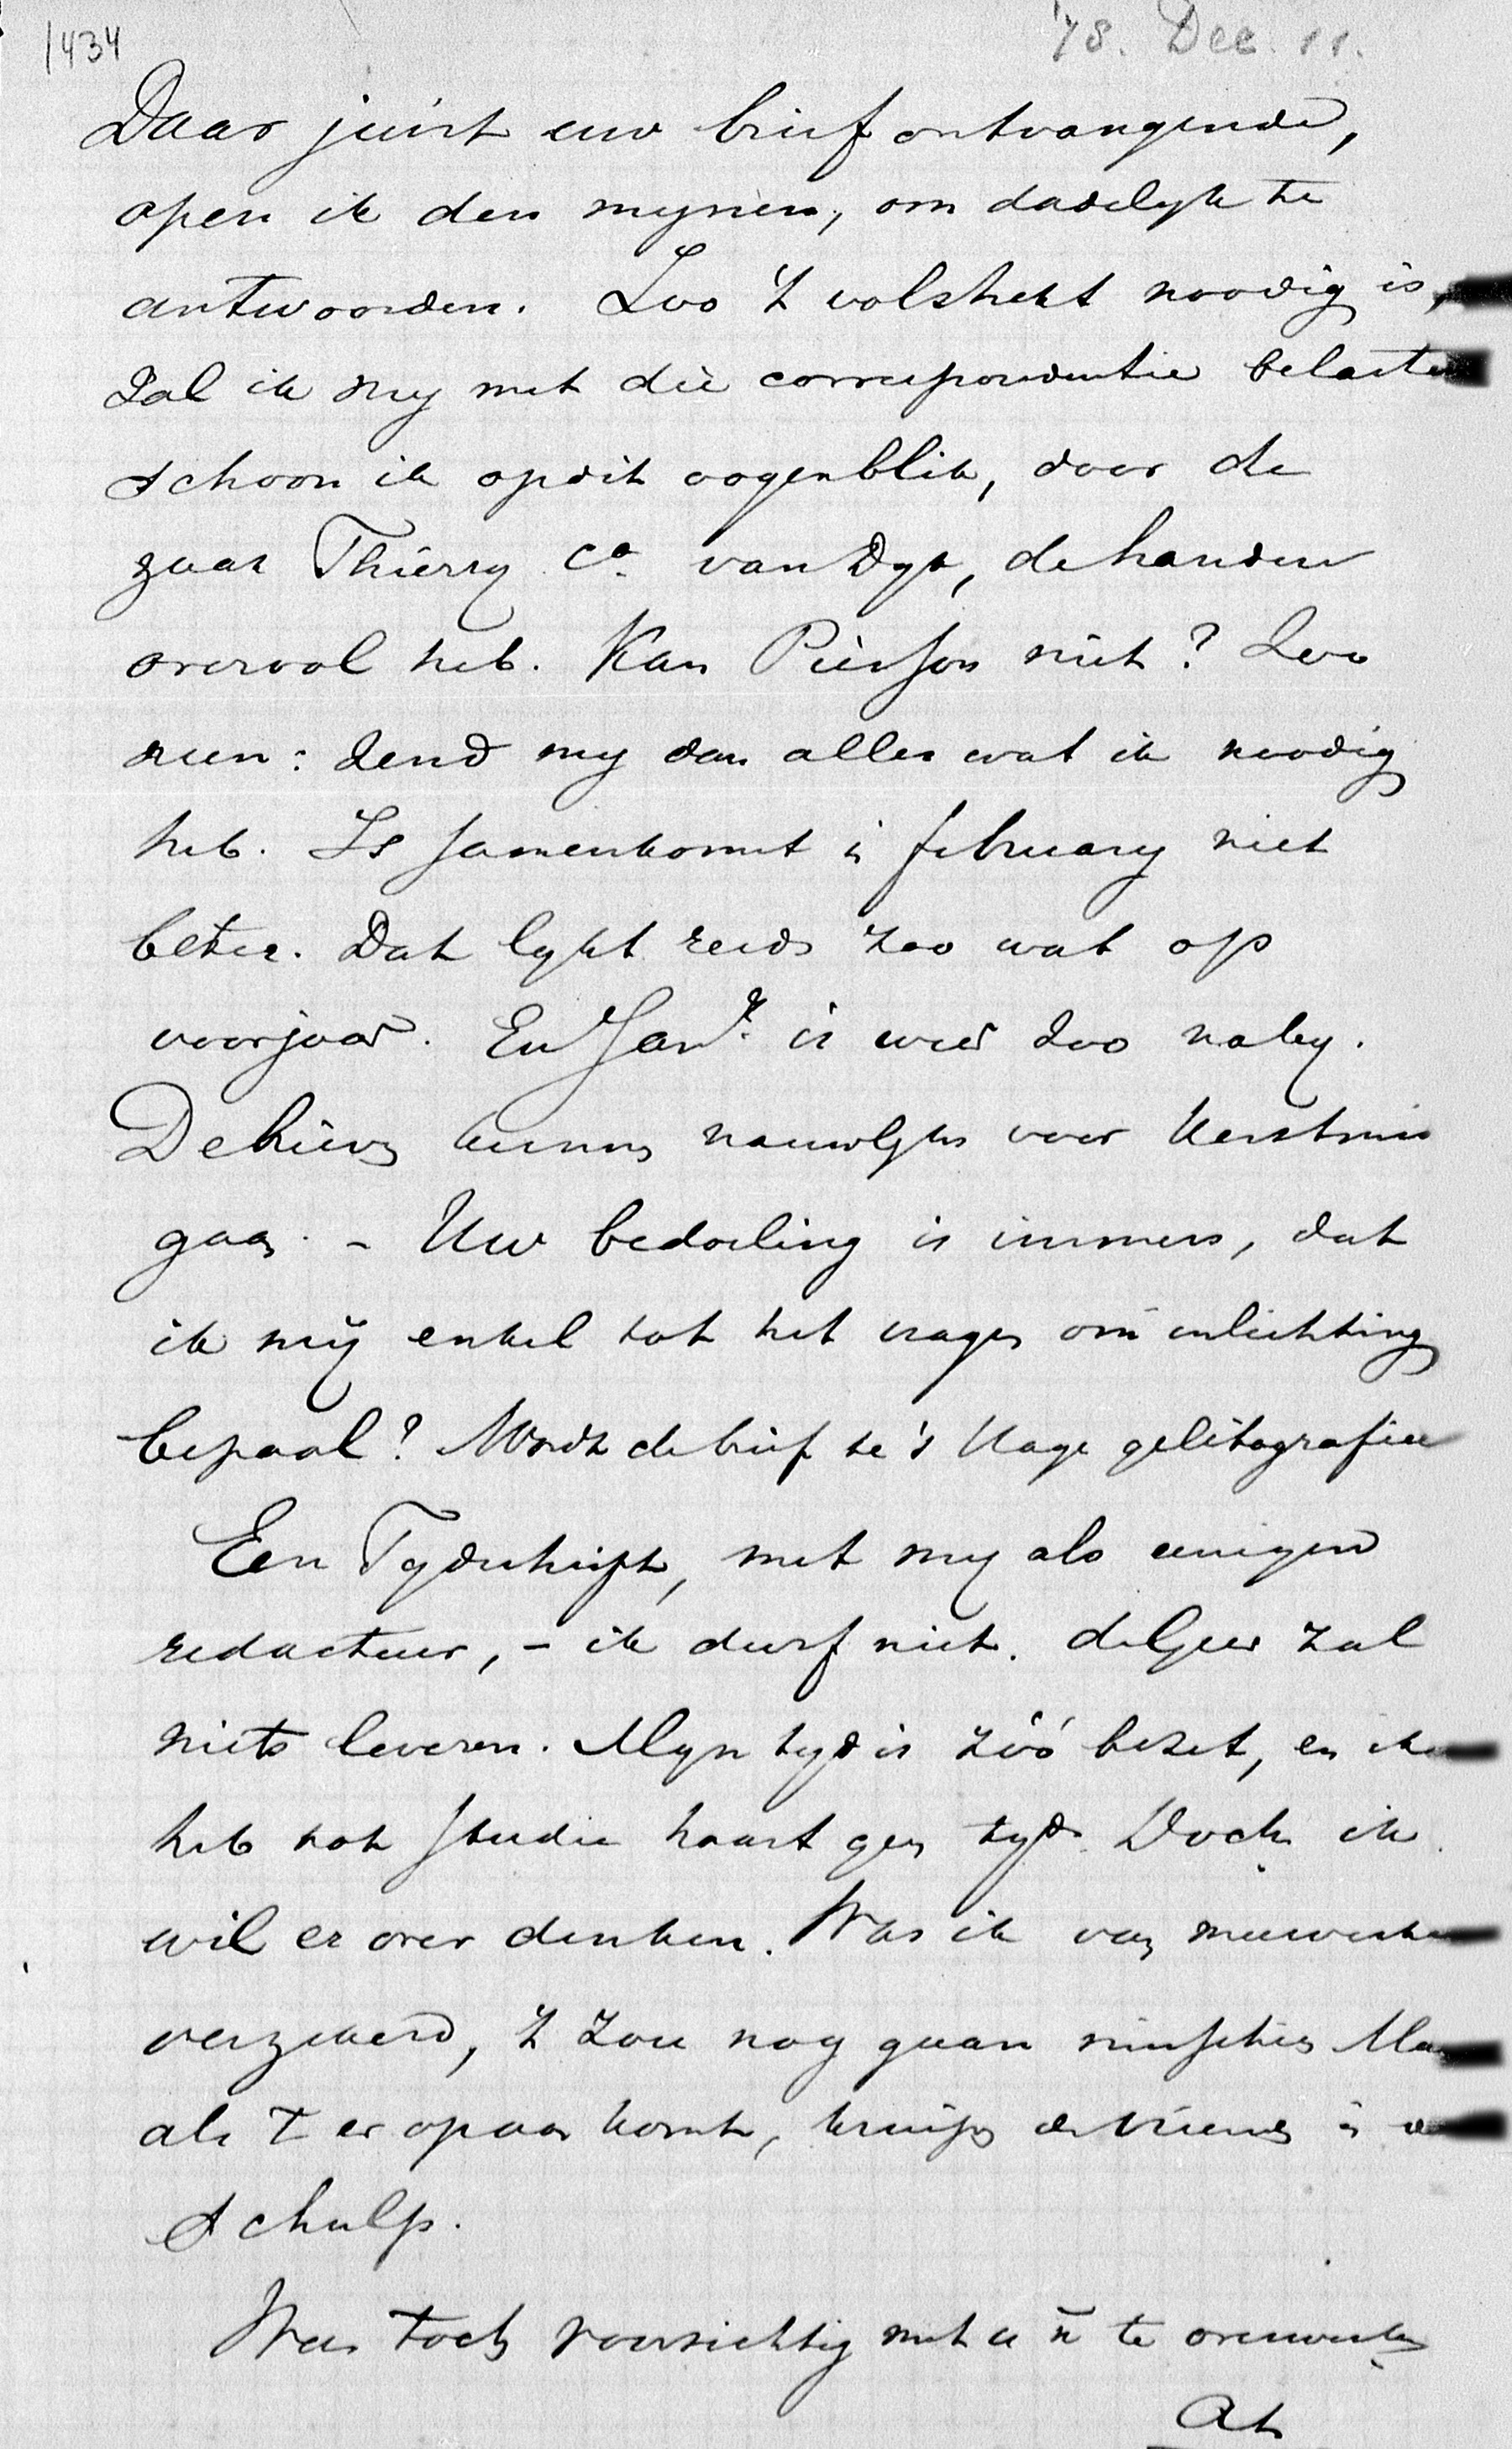 1434
'78. Dec. 11.
Daar juist uw brief ontvangende,
open ik den mynen, om dadelyk te
antwoorden. Zoo 't volstrekt noodig is,
zal ik my met die correspondentie belasten
schoon ik op dit oogenblik, door de
zaak Thierry ca. van Dyk, de handen
overvol heb. Kan Pierson niet? Zoo
neen: zend my dan alles wat ik noodig
heb. Is samenkomst in february niet
beter. Dat lykt reeds zoo wat op
voorjaar. En Jan. is weer zoo naby.
De brieven kunnen nauwlyks voor Kerstmis
gaan. – Uw bedoeling is immers, dat
ik mij enkel tot het vragen om inlichting
bepaal? Wordt de brief te 's Hage gelithografieerd
Een Tydschrift, met my als eenigen
redacteur, – ik durf niet. de Geer zal
niets leveren. Myn tyd is zóó bezet, en ik
heb tot studie haast geen tyd. Doch ik
wil er over denken. Was ik van meewerken
verzekerd, 't zou nog gaan misschien Maar
als 't er op aan komt, kruipen de vrienden in de
schulp.
Wees toch voorzichtig met u n te overwerken